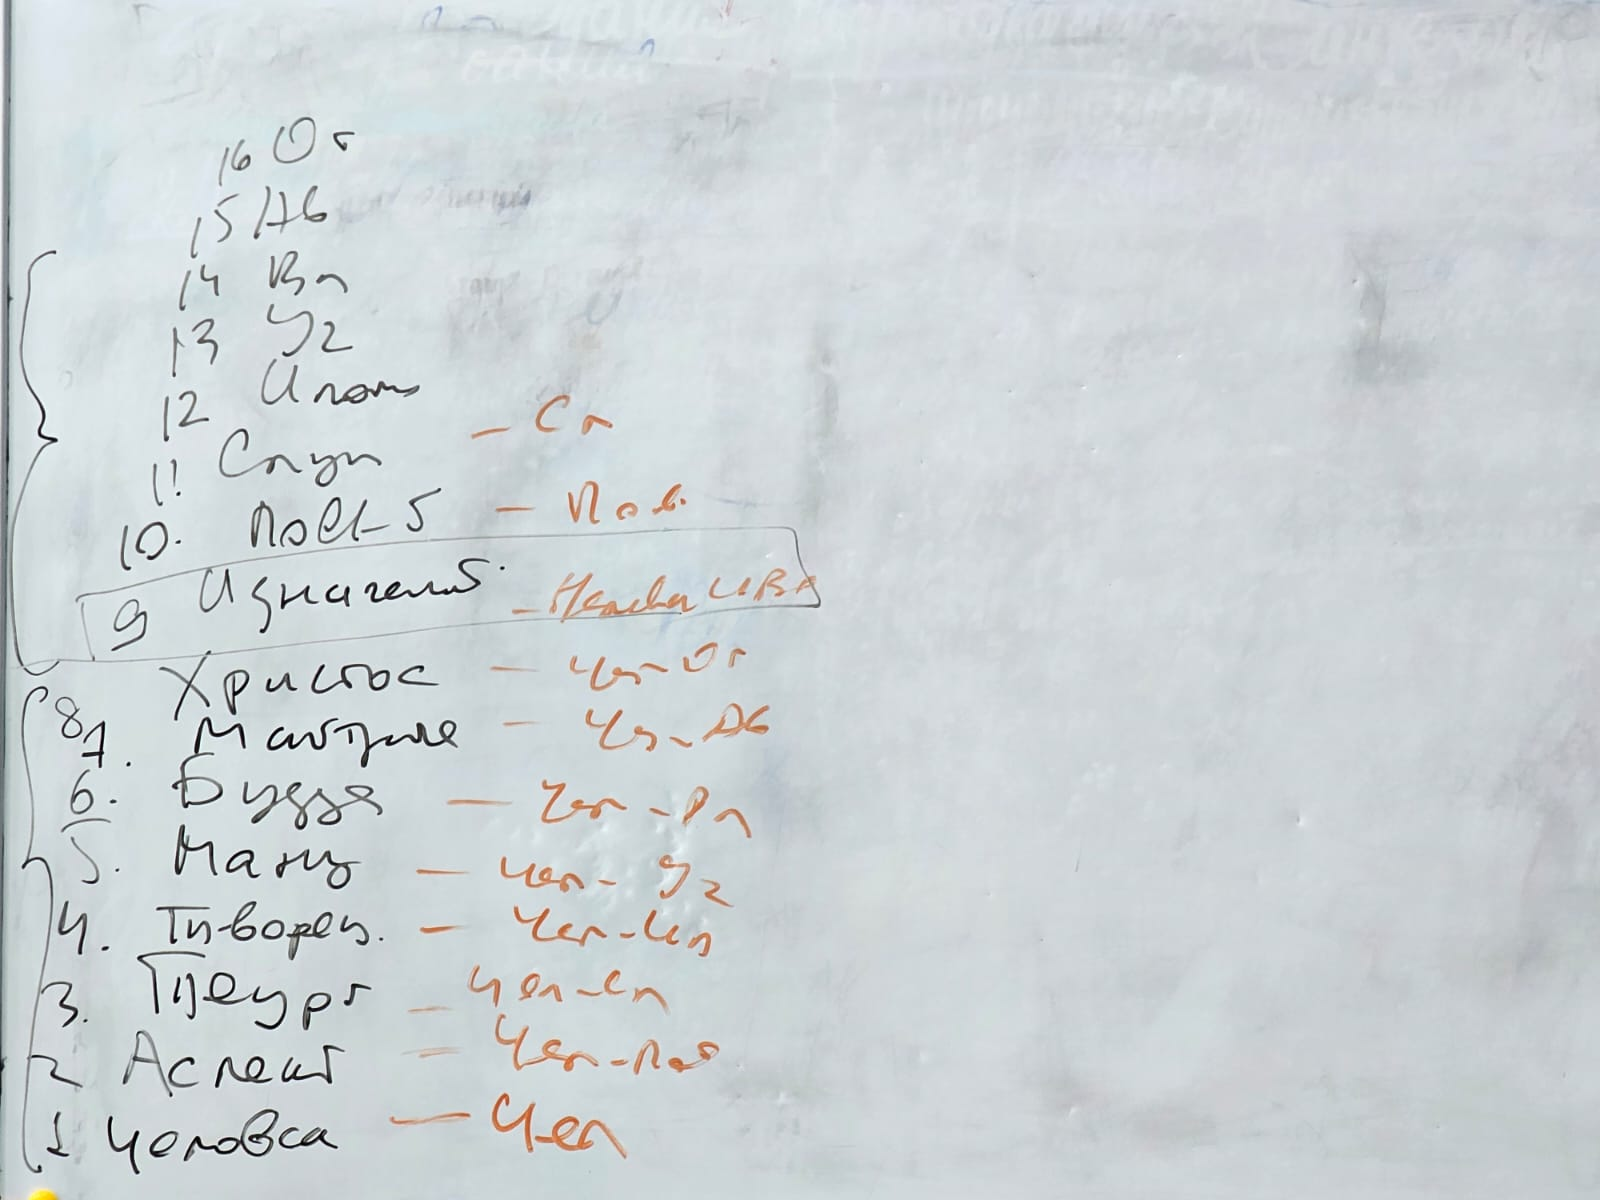 16 От
15 Ав
14 Вл
13 Уч
12 Ипост
11 Служ — Сл
10. Посв-й — Пос.
9 Изначальн. — Человек ИВО
8 Христос — Чел-От
7. Майтрея — Чел-Ав
6. Будда — Чел-Вл
5. Ману — Чел-Уч
4. Творец. — Чел-Ип
3. Теург — Чел-Сл
2 Аспект — Чел-Пос
1 Человека — Чел